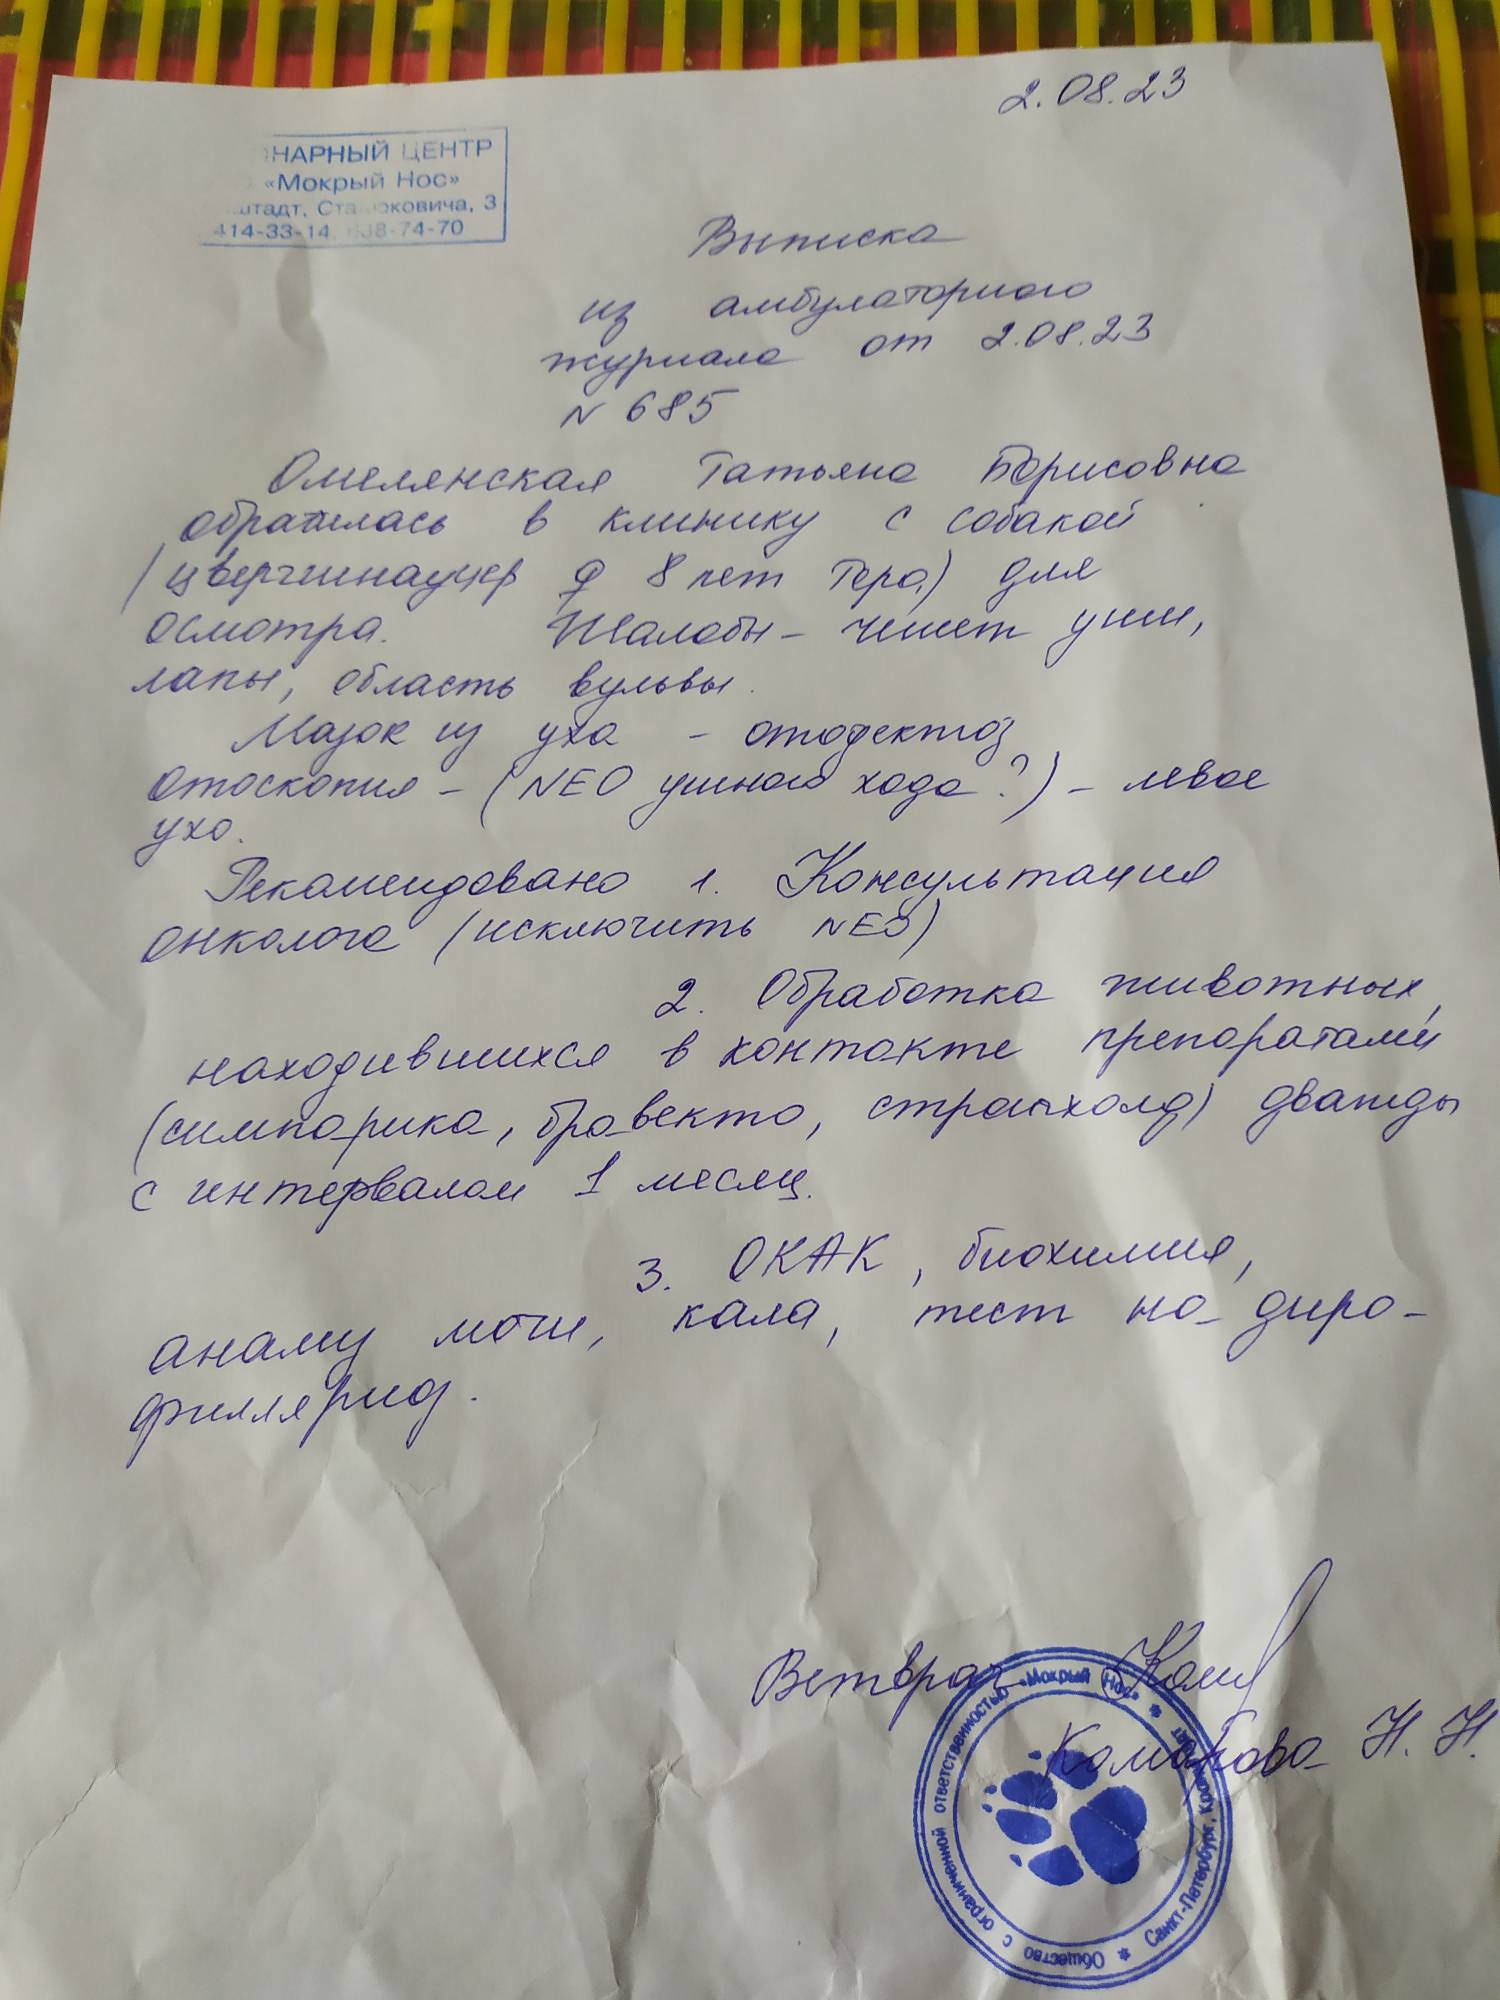 2.08.23
НАРНЫЙ ЦЕНТР
«Мокрый Нос»
штадт, Ста оковича, 3
414-33-14, 638-74-70
Выписка
из амбулаторного
журнала от 2.08.23
N 685
Омелянская Татьяна Борисовна
обратилась в клинику с собакой
(цвергшнауцер ♀ 8 лет Гера) для
осмотра. Жалобы - чешет уши,
лапы, область вульвы.
Мазок из уха - отодектоз
Отоскопия - (NEO ушного хода?) - левое
ухо.
Рекомендовано 1. Консультация
онколога (исключить NEO)
2. Обработка животных,
находившихся в контакте препаратами
(симпарика, бравекто, стронгхолд) дважды
с интервалом 1 месяц.
3. ОКАК, биохимия,
анализ мочи, кала, тест на диро-
филляриоз.
Ветврач
Комарова Н. Н.
Общество с ограниченной ответственностью «Мокрый Нос» * Санкт-Петербург,